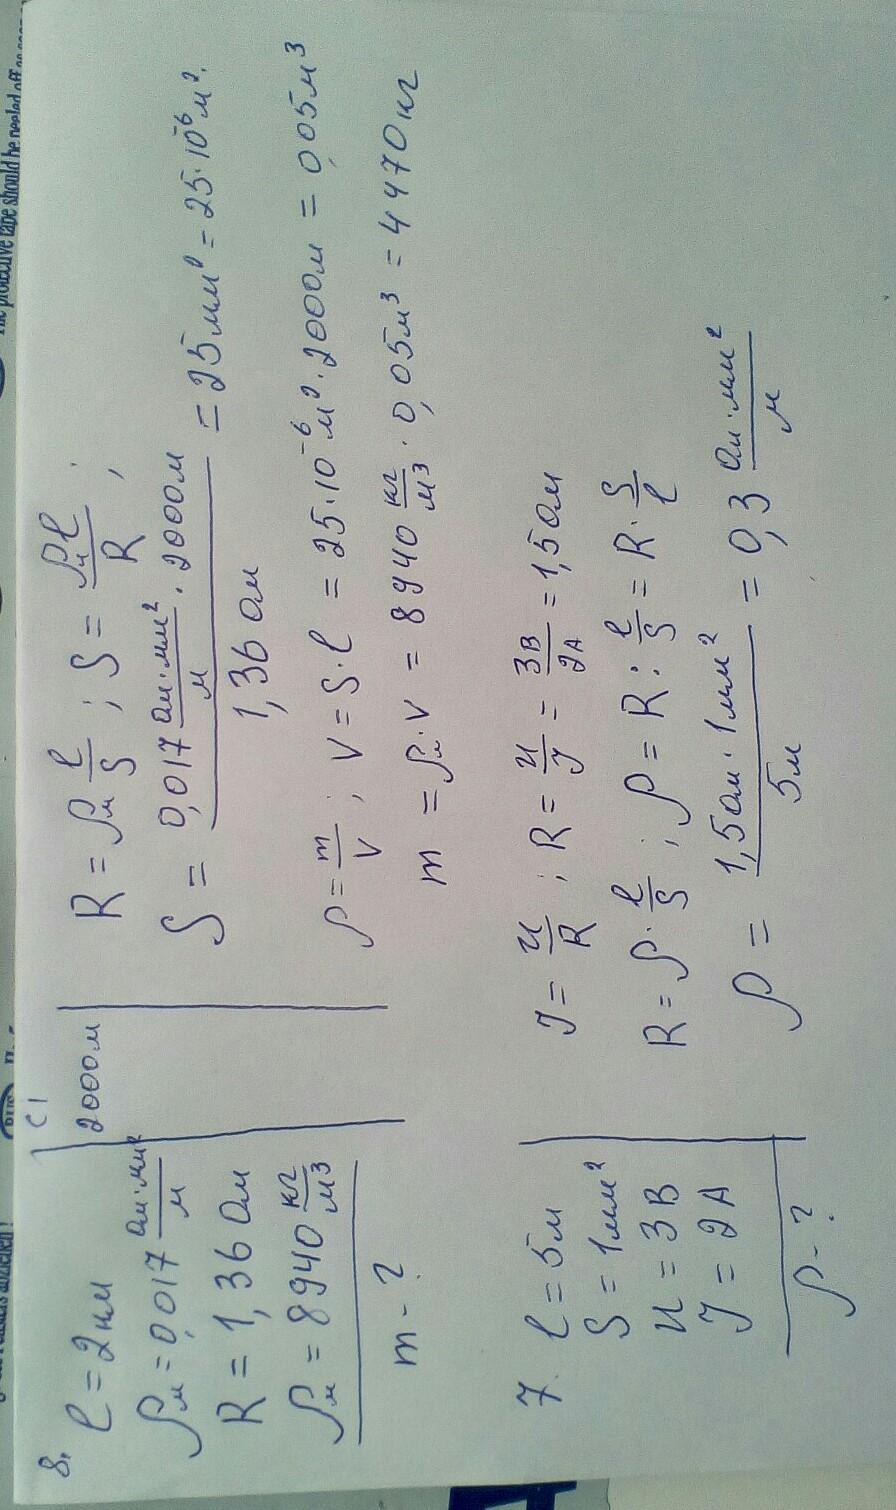 The protective tape should be peeled off
8.
l = 2км
СИ
2000м
ρм = 0,017 Ом·мм²/м
R = 1,36 Ом
ρм = 8940 кг/м³
m - ?
R = ρм l/S ; S = ρмl/R ;
S = 0,017 Ом·мм²/м · 2000м / 1,36 Ом = 25 мм² = 25·10⁻⁶ м².
ρ = m/V ; V = S·l = 25·10⁻⁶ м² · 2000м = 0,05м³
m = ρм·V = 8940 кг/м³ · 0,05м³ = 4470кг
7.
l = 5м
S = 1мм²
U = 3В
J = 2А
ρ - ?
J = U/R ; R = U/J = 3В/2А = 1,5 Ом
R = ρ · l/S ; ρ = R : l/S = R · S/l
ρ = 1,5 Ом · 1мм² / 5м = 0,3 Ом·мм²/м